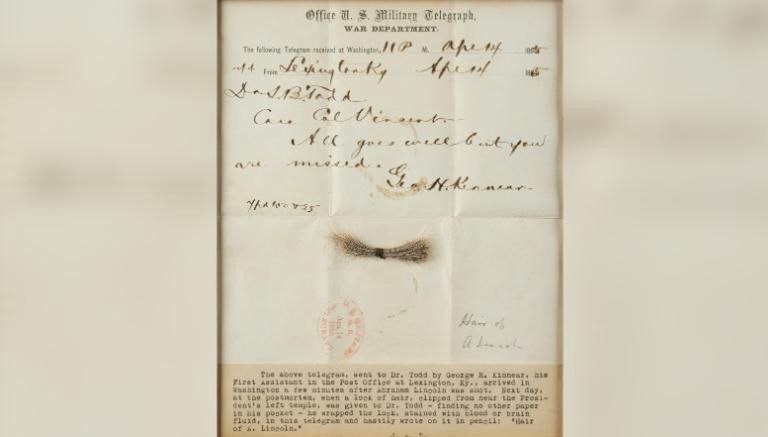 Office U. S. Military Telegraph,
WAR DEPARTMENT.
The following Telegram received at Washington, 11 P M. Apl 14 1865
From Lexington Ky Apl 14 1865
Dr L. B. Todd
Care Col Vincent
All goes well but you
are missed.
Geo. H. Kinnear
Hair of
A Lincoln
The above telegram, sent to Dr. Todd by George H. Kinnear, his
First Assistant in the Post Office at Lexington, Ky., arrived in
Washington a few minutes after Abraham Lincoln was shot. Next day,
at the postmortem, when a lock of hair, clipped from near the Presi-
dent's left temple, was given to Dr. Todd - finding no other paper
in his pocket - he wrapped the lock, stained with blood or brain
fluid, in this telegram and hastily wrote on it in pencil: "Hair
of A. Lincoln."